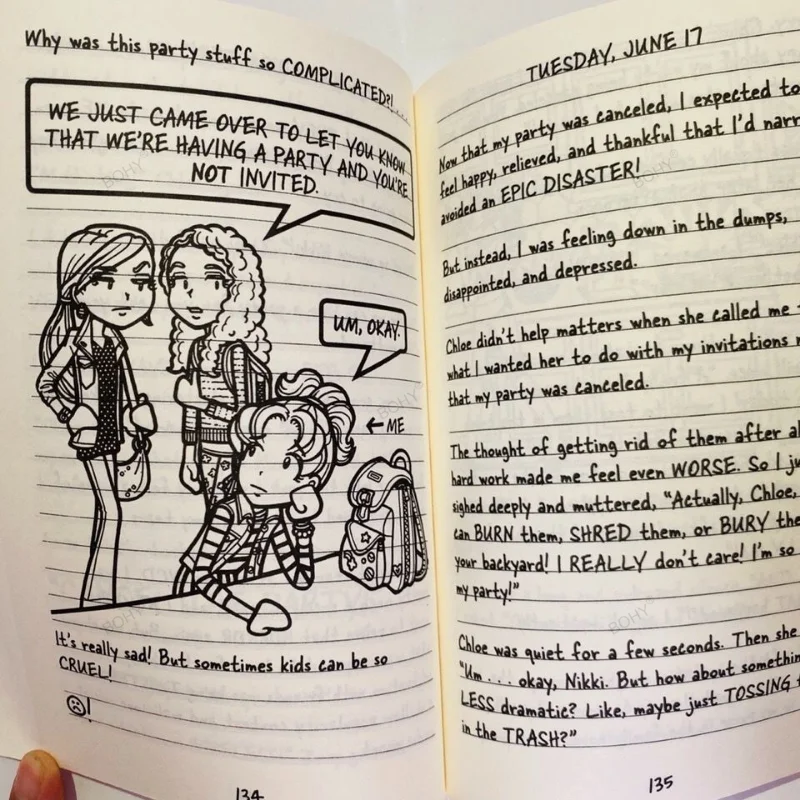 Why was this party stuff so COMPLICATED?!
WE JUST CAME OVER TO LET YOU KNOW
THAT WE'RE HAVING A PARTY AND YOU'RE
NOT INVITED.
UM, OKAY.
←ME
It's really sad! But sometimes kids can be so
CRUEL!
☹!
134
TUESDAY, JUNE 17
Now that my party was canceled, I expected to
feel happy, relieved, and thankful that I'd
avoided an EPIC DISASTER!
But instead, I was feeling down in the dumps,
disappointed, and depressed.
Chloe didn't help matters when she called me
what I wanted her to do with my invitations
that my party was canceled.
The thought of getting rid of them after
hard work made me feel even WORSE. So I
sighed deeply and muttered, "Actually, Chloe,
can BURN them, SHRED them, or BURY
your backyard! I REALLY don't care! I'm so
my party!"
Chloe was quiet for a few seconds. Then she
"Um . . . okay, Nikki. But how about
LESS dramatic? Like, maybe just TOSSING
in the TRASH?"
135
BOHY
BOHY
BOHY
BOHY